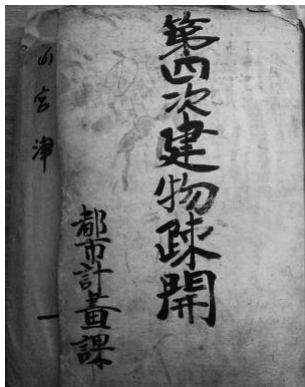 第四次建物疎開
都市計畫課
宮津